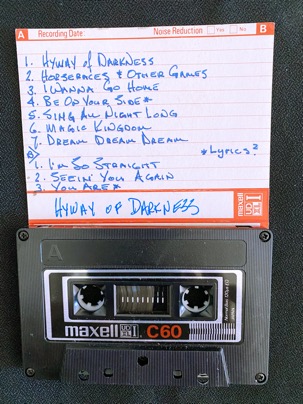 A Recording Date: Noise Reduction Yes No B
1. HYWAY OF DARKNESS
2. HORSERACES & OTHER GAMES
3. I WANNA GO HOME
4. BE ON YOUR SIDE*
5. SING ALL NIGHT LONG
6. MAGIC KINGDOM
7. DREAM DREAM DREAM
B) *LYRICS?
1. I'M SO STRAIGHT
2. SEEIN' YOU AGAIN
3. YOU ARE*
HYWAY OF DARKNESS
maxell
A
maxell C60